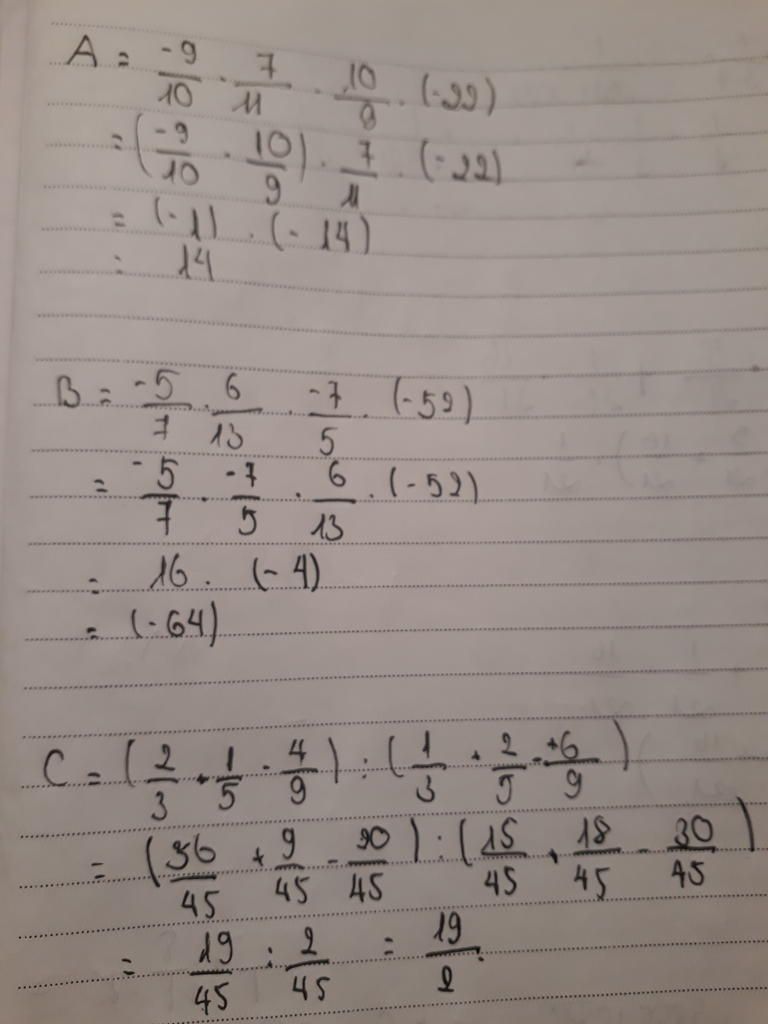 A = -9/10 . 7/11 . 10/9 . (-22)
= (-9/10 . 10/9) . 7/11 . (-22)
= (-1) . (-14)
= 14
B = -5/7 . 6/13 . -7/5 . (-52)
= -5/7 . -7/5 . 6/13 . (-52)
= 16 . (-4)
= (-64)
C = (2/3 + 1/5 - 4/9) : (1/3 + 2/5 - +6/9)
= (36/45 + 9/45 - 20/45) : (15/45 + 18/45 - 30/45)
= 19/45 : 2/45 = 19/2.